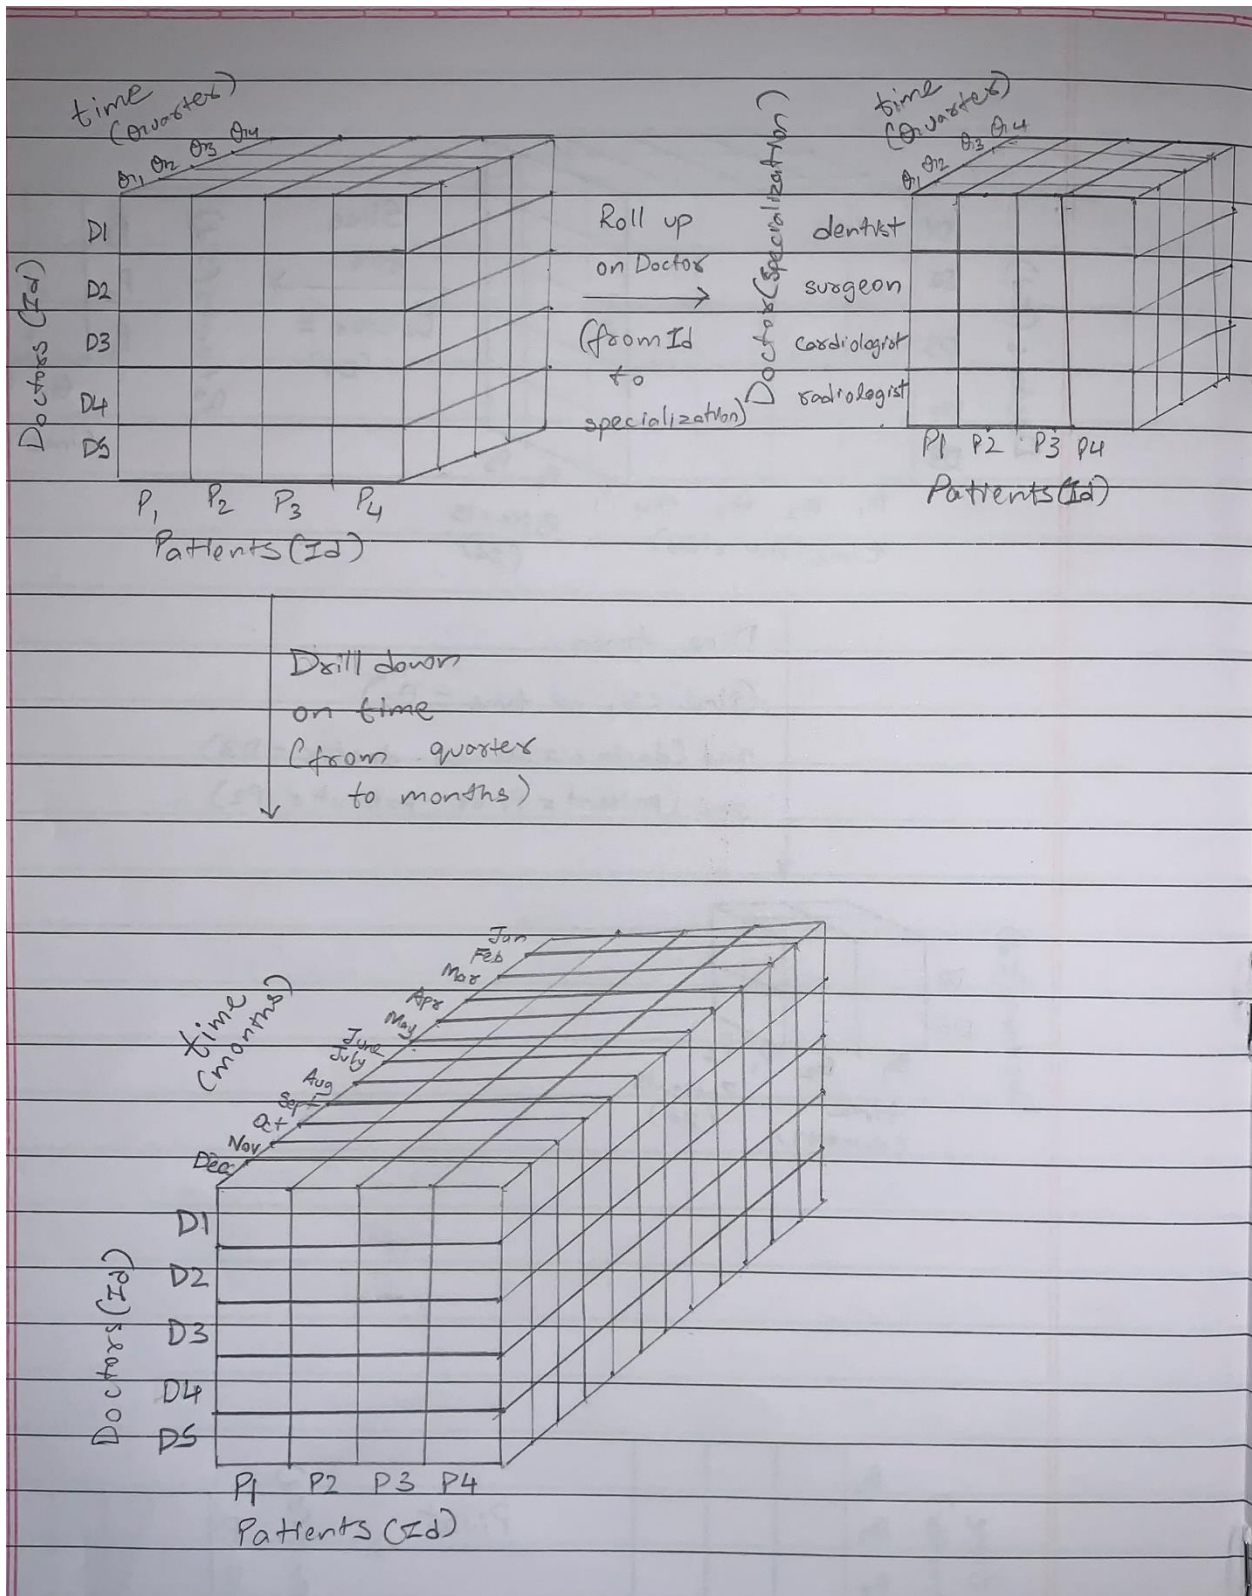 time
(Quarter)
Q1 Q2 Q3 Q4
Doctors (Id)
D1
D2
D3
D4
D5
P1 P2 P3 P4
Patients (Id)
Roll up
on Doctor
(from Id
to
specialization)
time
(Quarter)
Q1 Q2 Q3 Q4
Doctor (Specialization)
dentist
surgeon
cardiologist
radiologist
P1 P2 P3 P4
Patients (Id)
Drill down
on time
(from quarter
to months)
time
(months)
Jan
Feb
Mar
Apr
May
June
July
Aug
Sept
Oct
Nov
Dec
Doctors (Id)
D1
D2
D3
D4
D5
P1 P2 P3 P4
Patients (Id)